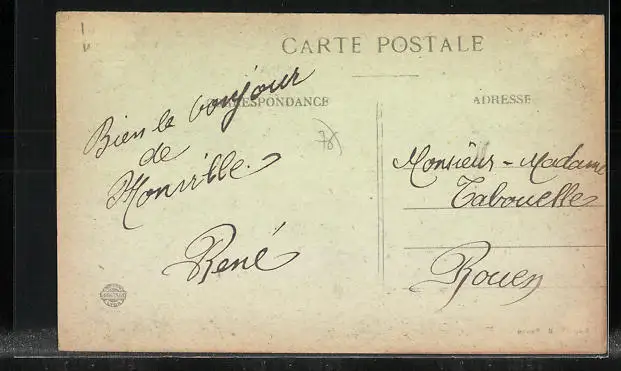 CARTE POSTALE
CORRESPONDANCE
ADRESSE
Bien le bonjour
de
Monville.
René
78
Monsieur - Madame
Tabouelle
Rouen